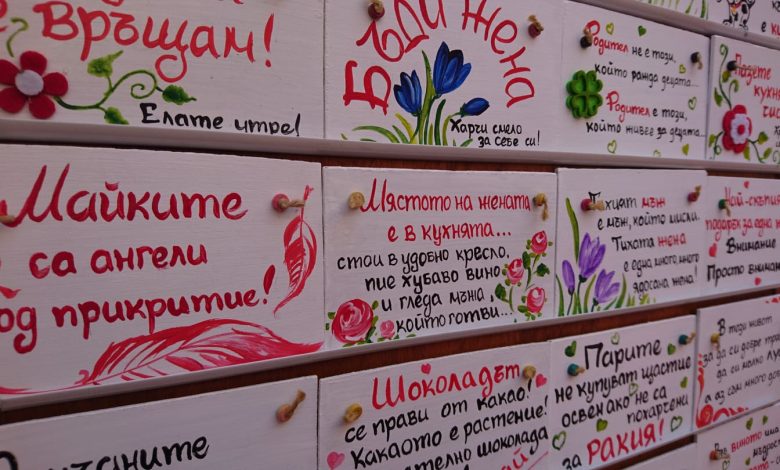 Връщам!
Елате утре!
Бъди жена
Харчи смело
за себе си!
Родител не е този,
който ражда децата...
Родител е този,
който живее за децата...
Пазете
Майките
са ангели
под прикритие!
Мястото на жената
е в кухнята...
стои в удобно кресло,
пие хубаво вино
и гледа мъжа,
който готви...
Тихият мъж
е мъж, който мисли.
Тихата жена
е една много, много
ядосана жена!
Най-скъпия
подарък за една
Внимание
Просто внима
Шоколадът
се прави от какао!
Какаото е растение!
шоколада
Парите
не купуват щастие
освен ако не са
похарчени
за РАКИЯ!
В този живот
за да си добре
за да си малко
аз съм много
виното